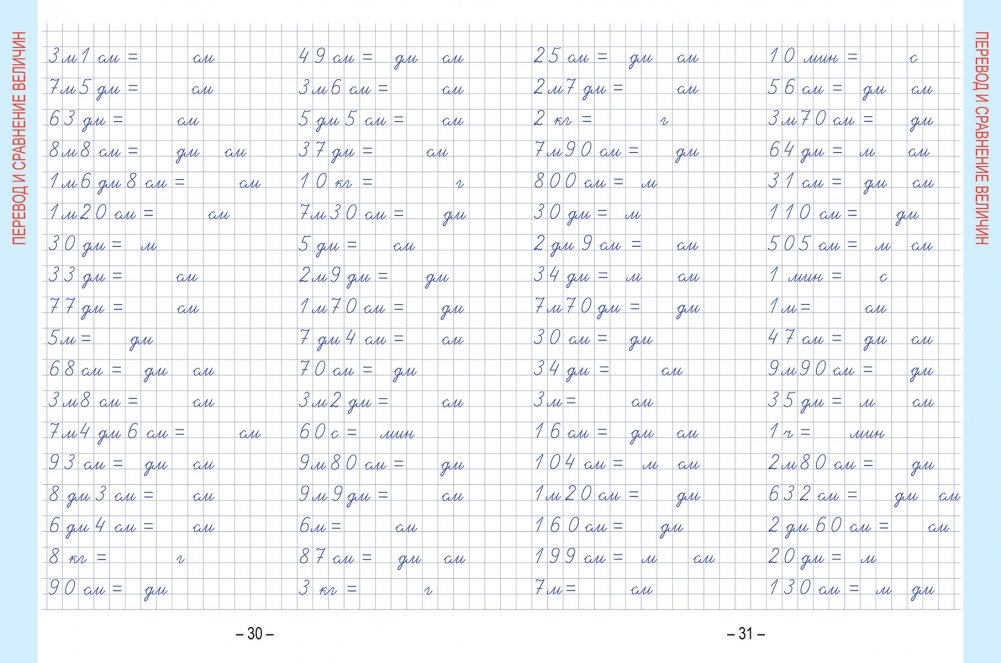 ПЕРЕВОД И СРАВНЕНИЕ ВЕЛИЧИН
3м1см = см
7м5дм = см
63дм = см
8м8см = дм см
1м6дм8см = см
1м20см = см
30дм = м
33дм = см
77дм = см
5м = дм
68см = дм см
3м8см = см
7м4дм6см = см
93см = дм см
8дм3см = см
6дм4см = см
8 кг = г
90см = дм
49см = дм см
3м6см = см
5дм5см = см
37дм = см
10кг = г
7м30см = дм
5дм = см
2м9дм = дм
1м70см = дм
7дм4см = см
70см = дм
3м2дм = см
60с = мин
9м80см = дм
9м9дм = дм
6м = см
87см = дм см
3 кг = г
– 30 –
25см = дм см
2м7дм = см
2 кг = г
7м90см = дм
800см = м
30дм = м
2дм9см = см
34дм = м см
7м70дм = дм
30см = дм
34дм = см
3м = см
16см = дм см
104см = м см
1м20см = дм
160см = дм
199см = м см
7м = см
10 мин = с
56см = дм см
3м70см = дм
64дм = м см
31см = дм см
110см = дм
505см = м см
1 мин = с
1м = см
47см = дм см
9м90см = дм
35дм = м см
1ч = мин
2м80см = дм
632см = дм см
2дм60см = см
20дм = м
130см = м дм
– 31 –
ПЕРЕВОД И СРАВНЕНИЕ ВЕЛИЧИН